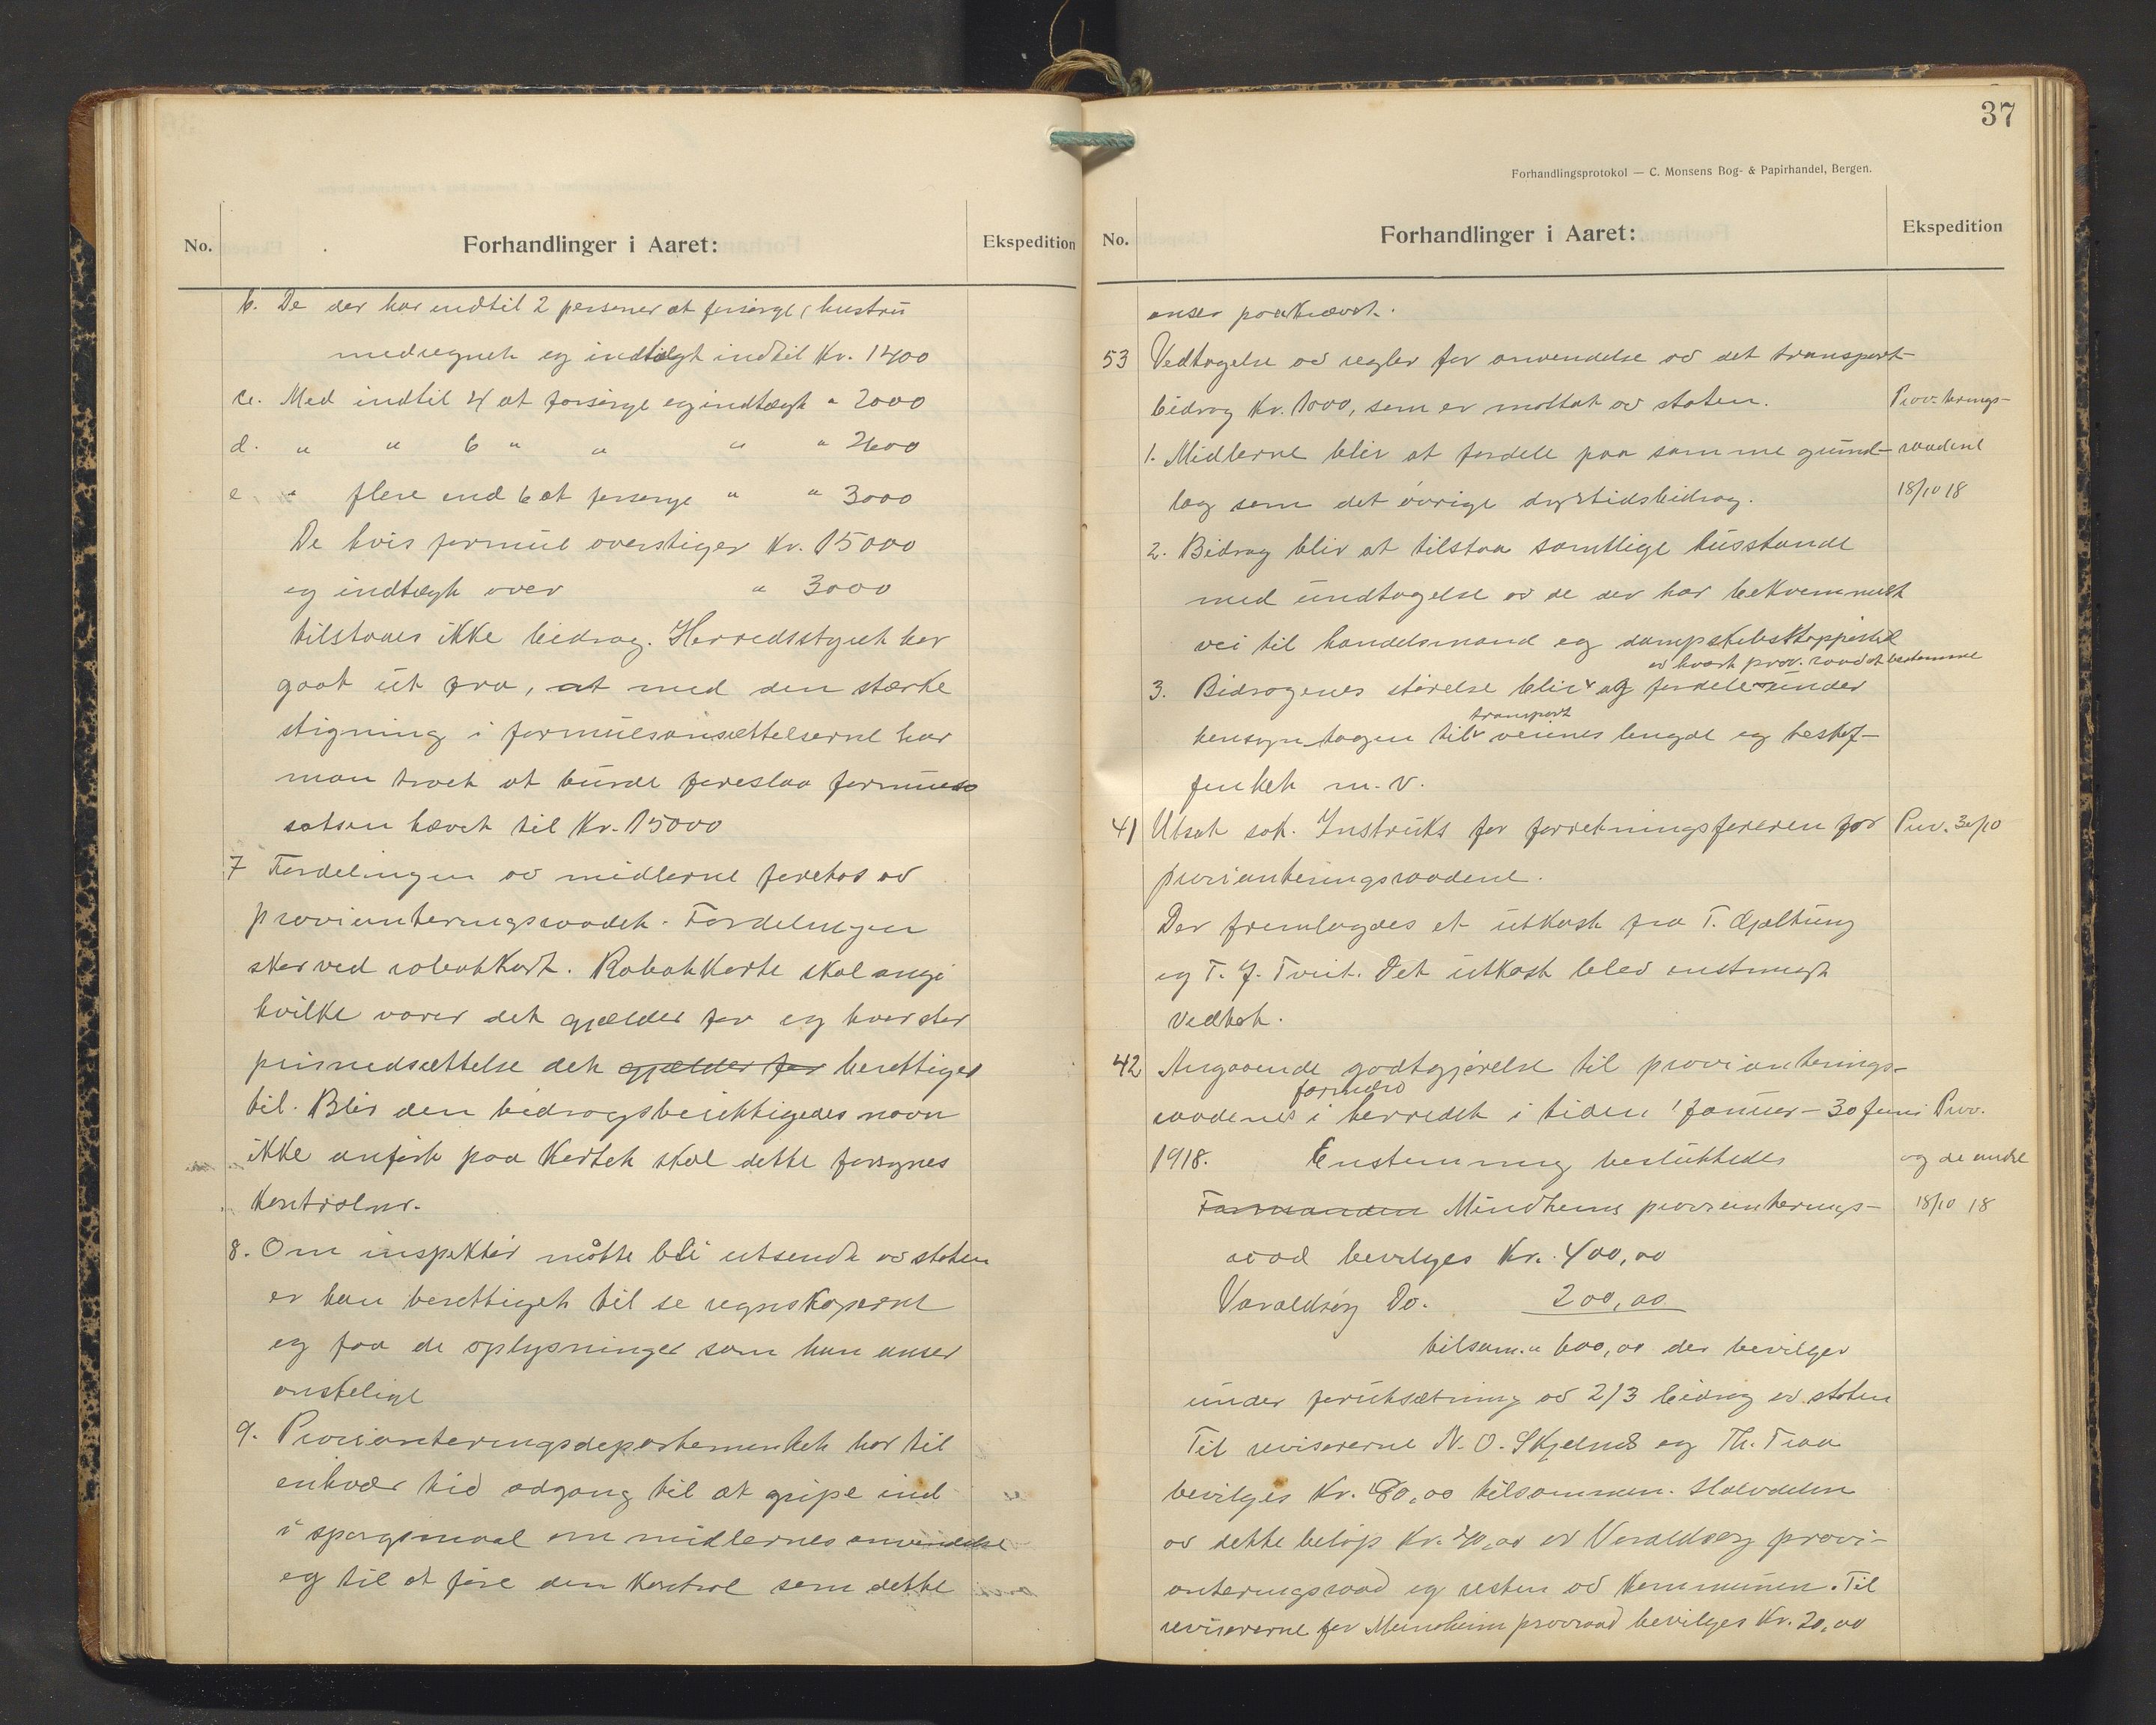 No.
Forhandlinger i Aaret:
Ekspedition
b. De der har indtil 2 personer at forsørge (hustru
medregnet og indtægt indtil Kr. 1400
c. Med indtil 4 at forsørge og indtægt " 2000
d. " " 6 " " " " 2600
e " flere end 6 at forsørge " " 3000
De hvis formue overstiger Kr. 15000
og indtægt over " 3000
tilstaaes ikke bidrag. Herredsstyret har
gaat ut fra, at med den stærke
stigning i formuesansættelserne har
man troet at burde foreslaa formues
satsen hævet til Kr. 15000
7 Fordelingen av midlerne foretas av
provianteringsraadet. Fordelingen
sker ved rabatkort. Rabatkorte skal angi
hvilke varer det gjælder for og hvor stor
prisnedsættelse det gjælder for berettiger
til. Blir den bidragsberettigedes navn
ikke anført paa Kortet skal dette forsynes
Kontrolnr.
8. Om inspektør måtte bli utsendt av staten
er han berettiget til se regnskaperne
og faa de oplysninger som han anser
ønskelige
9. Provianteringsdepartementet har til
enhver tid adgang til at gripe ind
i spørgsmaal om midlernes anvendelse
og til at føre den Kontrol som dette
37
Forhandlingsprotokol — C. Monsens Bog- & Papirhandel, Bergen.
No.
Forhandlinger i Aaret:
Ekspedition
anser paakrævet.
53 Vedtagelse av regler for anvendelse av det transport-
bidrag Kr. 1000, som er mottat av staten. Prov.terings-
1. Midlerne blir at fordele paa samme grund- raadene
lag som det øvrige dyrtidsbidrag. 18/10 18
2. Bidrag blir at tilstaa samtlige husstande
med undtagelse av de der har bekvemmest
vei til handelsmand og dampskibsstoppested
av hvert prov. raad at bestemme
3. Bidragenes størelse blir og fordeles under
transport
hensyn tagen til veienes lengde og beskaf-
fenhet m.v.
41 Utsat sak. Instruks for forretningsføreren for Prov. 30/10
provianteringsraadene.
Der fremlagdes et utkast fra T. Gjeltung
og T. J. Tveit. Det utkast blev enstemmigt
Vedtat.
42 Angaaende godtgjørelse til provianterings-
formænd
raadenes i herredet i tiden 1 januar - 30 Juni Prov.
1918. Enstemmig besluttedes og de andre
Formanden Mundheims provianterings- 18/10 18
raad bevilges Kr. 400,00
Varaldsøy Do. 200,00
tilsam. " 600,00 der bevilges
under forutsætning av 2/3 bidrag av staten
Til revisorerne N. O. Skjelnes og Th. Traa
bevilges Kr. 80,00 tilsammen. Halvdelen
av dette beløp Kr. 40,00 av Varaldsøy provi-
anteringsraad og resten av Kommunen. Til
revisorerne for Mundheim provraad bevilges Kr. 20,00